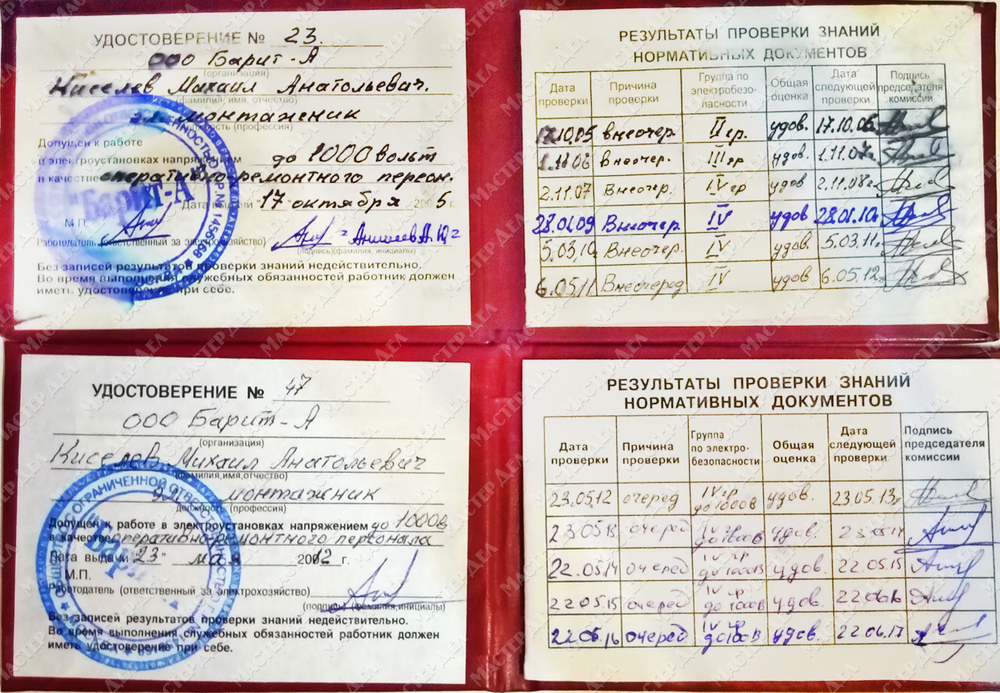 УДОСТОВЕРЕНИЕ № 23.
ООО Барит-А
(организация)
Киселев Михаил Анатольевич.
(фамилия, имя, отчество)
эл. монтажник
должность (профессия)
Допущен к работе
в электроустановках напряжением до 1000 вольт
в качестве оперативно-ремонтного персон.
Дата выдачи "17" октября 2005 г.
М.П.
Работодатель (ответственный за электрохозяйство)
(подпись)(фамилия, инициалы)
Без записей результатов проверки знаний недействительно.
Во время выполнения служебных обязанностей работник должен
иметь удостоверение при себе.
РЕЗУЛЬТАТЫ ПРОВЕРКИ ЗНАНИЙ
НОРМАТИВНЫХ ДОКУМЕНТОВ
Дата проверки Причина проверки Группа по электробезопасности Общая оценка Дата следующей проверки Подпись председателя комиссии
17.10.05 внеочер. II гр. удов. 17.10.06
1.11.06 Внеочер. III гр удов. 1.11.07г.
2.11.07 Внеочер. IV гр удов 2.11.08г
28.01.09 Внеочер. IV удов 28.01.10г
5.03.10 Внеочер. IV удов. 5.03.11г.
6.05.11 Внеочеред IV удов 6.05.12г.
УДОСТОВЕРЕНИЕ № 47
ООО Барит-А
(организация)
Киселёв Михаил Анатольевич
(фамилия,имя,отчество)
эл. монтажник
должность (профессия)
Допущен к работе в электроустановках напряжением до 1000в
в качестве оперативно-ремонтного персонала
Дата выдачи "23" мая 2012 г.
М.П.
Работодатель (ответственный за электрохозяйство)
(подпись) (фамилия,инициалы)
Без записей результатов проверки знаний недействительно.
Во время выполнения служебных обязанностей работник должен
иметь удостоверение при себе.
РЕЗУЛЬТАТЫ ПРОВЕРКИ ЗНАНИЙ
НОРМАТИВНЫХ ДОКУМЕНТОВ
Дата проверки Причина проверки Группа по электробезопасности Общая оценка Дата следующей проверки Подпись председателя комиссии
23.05.12 очеред IV гр до 1000в удов. 23.05.13г
23.05.13 очеред IV гр до 1000в удов.
22.05.14 очеред IV гр до 1000в удов. 22.05.15
22.05.15 очеред IV гр до 1000в удов.
22.06.16 очеред IV гр до 1000в удов. 22.06.17